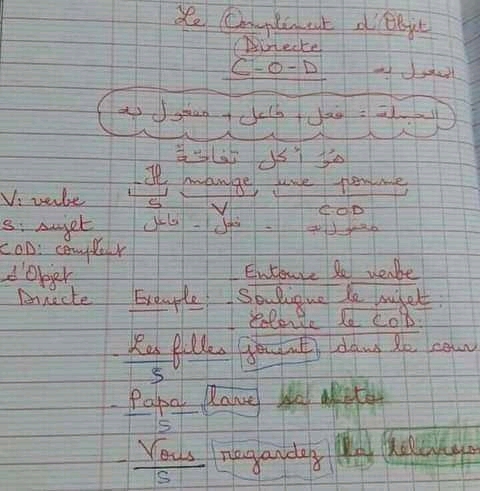 Le Complément d'Objet
Directe
C-O-D المفعول به
الجملة = فعل + فاعل + مفعول به
هو أكل تفاحة
- Il mange une pomme
S V COD
فاعل - فعل - مفعول به
V: verbe
S: sujet
COD: complent
d'Objet
Directe
- Entoure le verbe
Exemple: - Souligne le sujet.
- Colorie le COD.
- Les filles jouent dans la cour
S
- Papa lave sa moto
S
- Vous regardez la télévision
S